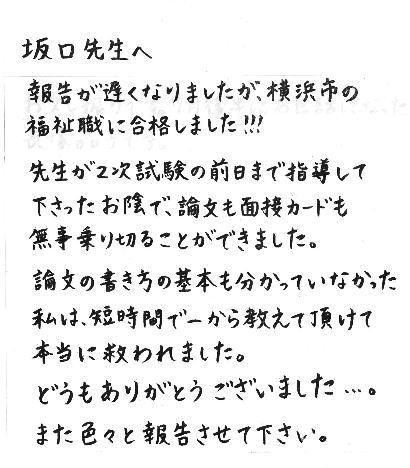 坂口先生へ
報告が遅くなりましたが、横浜市の
福祉職に合格しました!!!
先生が2次試験の前日まで指導して
下さったお陰で、論文も面接カードも
無事乗り切ることができました。
論文の書き方の基本も分かっていなかった
私は、短時間で一から教えて頂けて
本当に救われました。
どうもありがとうございました…。
また色々と報告させて下さい。